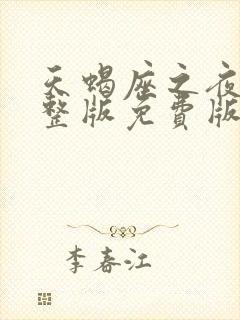 天蝎座之夜
整版免费版
李春江